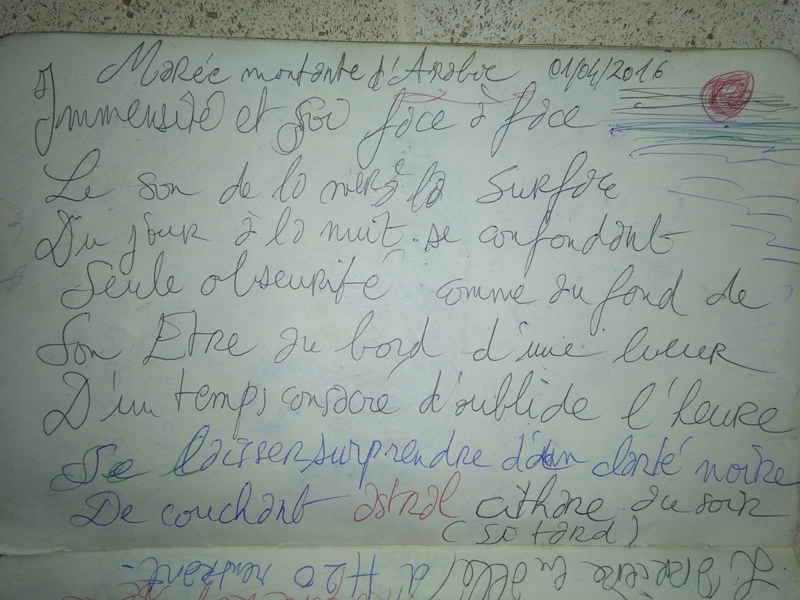 Marée montante d'Arabie 01/04/2016
Immensité et soi face à face
Le son de la mer à la surface
Du jour à la nuit se confondant
Seule obscurité comme au fond de
Son Être au bord d'une lueur
D'un temps consacré d'oubli de l'heure
Se laisser surprendre d'un clarté noire
De couchant astral cithare du soir
(so tard)
d'H2O rentrant